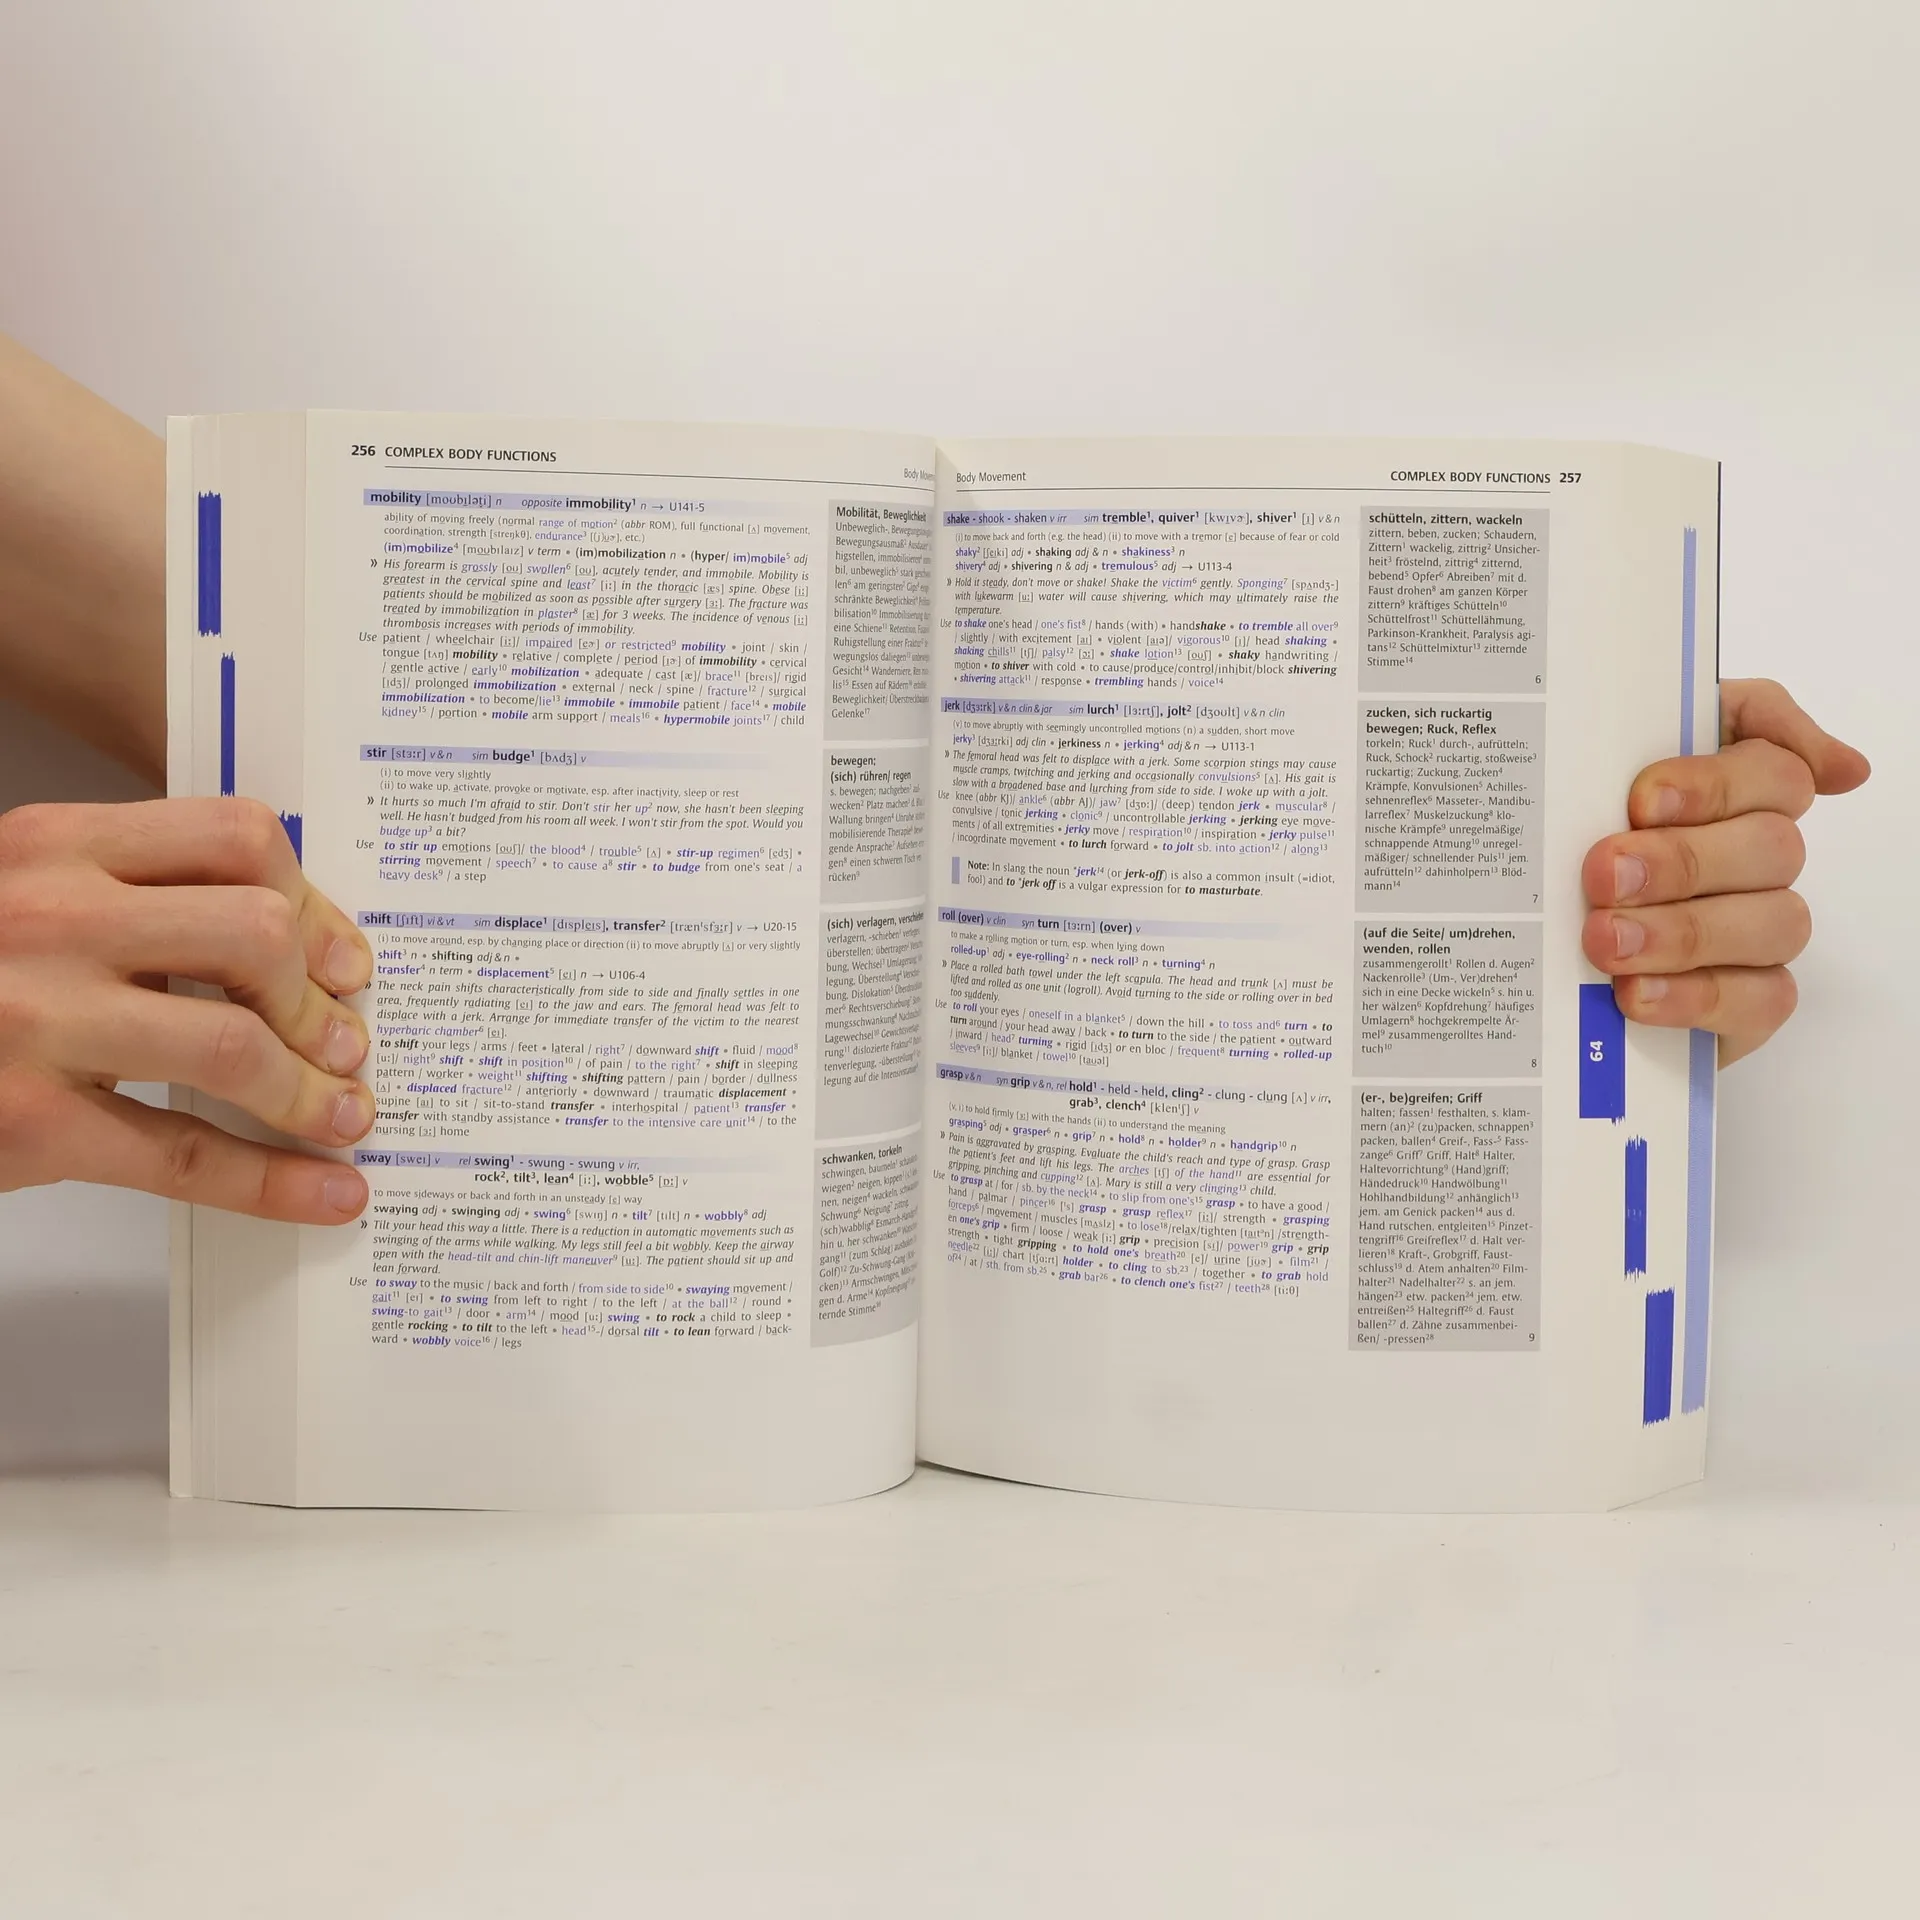 256 COMPLEX BODY FUNCTIONS
mobility [moʊbɪləti] n opposite immobility¹ n → U141-5
ability of moving freely (normal range of motion² (abbr ROM), full functional [ʌ] movement,
coordination, strength [streŋkθ], endurance³ [(j)ʊɚ], etc.)
(im)mobilize⁴ [moʊbɪlaɪz] v term • (im)mobilization n • (hyper/ im)mobile⁵ adj
» His forearm is grossly [oʊ] swollen⁶ [oʊ], acutely tender, and immobile. Mobility is
greatest in the cervical spine and least⁷ [iː] in the thoracic [æs] spine. Obese [iː]
patients should be mobilized as soon as possible after surgery [ɜː]. The fracture was
treated by immobilization in plaster⁸ [æ] for 3 weeks. The incidence of venous [iː]
thrombosis increases with periods of immobility.
Use patient / wheelchair [iː]/ impaired [eɚ] or restricted⁹ mobility • joint / skin /
tongue [tʌŋ] mobility • relative / complete / period [ɪɚ] of immobility • cervical
/ gentle active / early¹⁰ mobilization • adequate / cast [æ]/ brace¹¹ [breɪs]/ rigid
[ɪdʒ]/ prolonged immobilization • external / neck / spine / fracture¹² / surgical
immobilization • to become/lie¹³ immobile • immobile patient / face¹⁴ • mobile
kidney¹⁵ / portion • mobile arm support / meals¹⁶ • hypermobile joints¹⁷ / child
Mobilität, Beweglichkeit
Unbeweglich-,
Bewegungsausmaß²
higstellen, immobilisieren⁴
bil, unbeweglich⁵
len⁶ am geringsten⁷
schränkte Beweglichkeit⁹
bilisation¹⁰
eine Schiene¹¹
Ruhigstellung einer
wegungslos daliegen¹³
Gesicht¹⁴ Wanderniere,
lis¹⁵ Essen auf Rädern¹⁶
Beweglichkeit/
Gelenke¹⁷
stir [stɜːr] v & n sim budge¹ [bʌdʒ] v
(i) to move very slightly
(ii) to wake up, activate, provoke or motivate, esp. after inactivity, sleep or rest
» It hurts so much I'm afraid to stir. Don't stir her up² now, she hasn't been sleeping
well. He hasn't budged from his room all week. I won't stir from the spot. Would you
budge up³ a bit?
Use to stir up emotions [oʊʃ]/ the blood⁴ / trouble⁵ [ʌ] • stir-up regimen⁶ [edʒ] •
stirring movement / speech⁷ • to cause a⁸ stir • to budge from one's seat / a
heavy desk⁹ / a step
bewegen;
(sich) rühren/ regen
s. bewegen; nachgeben¹
wecken² Platz machen³
Wallung bringen⁴
mobilisierende Therapie⁶
gende Ansprache⁷
gen⁸ einen schweren Tisch
rücken⁹
shift [ʃɪft] vi & vt sim displace¹ [dɪspleɪs], transfer² [trænˈsfɜːr] v → U20-15
(i) to move around, esp. by changing place or direction (ii) to move abruptly [ʌ] or very slightly
shift³ n • shifting adj & n •
transfer⁴ n term • displacement⁵ [eɪ] n → U106-4
» The neck pain shifts characteristically from side to side and finally settles in one
area, frequently radiating [eɪ] to the jaw and ears. The femoral head was felt to
displace with a jerk. Arrange for immediate transfer of the victim to the nearest
hyperbaric chamber⁶ [eɪ].
to shift your legs / arms / feet • lateral / right⁷ / downward shift • fluid / mood⁸
[uː]/ night⁹ shift • shift in position¹⁰ / of pain / to the right⁷ • shift in sleeping
pattern / worker • weight¹¹ shifting • shifting pattern / pain / border / dullness
[ʌ] • displaced fracture¹² / anteriorly • downward / traumatic displacement •
supine [aɪ] to sit / sit-to-stand transfer • interhospital / patient¹³ transfer •
transfer with standby assistance • transfer to the intensive care unit¹⁴ / to the
nursing [ɜː] home
(sich) verlagern,
verlagern, -schieben¹
überstellen; übertragen²
bung, Wechsel³
legung, Überstellung⁴
bung, Dislokation⁵
mer⁶ Rechtsverschiebung⁷
mungsschwankung⁸
Lagewechsel¹⁰
rung¹¹ dislozierte Fraktur¹²
tenverlegung, -überstellung¹³
legung auf die Intensivstation¹⁴
sway [sweɪ] v rel swing¹ - swung - swung v irr,
rock², tilt³, lean⁴ [iː], wobble⁵ [ɒː] v
to move sideways or back and forth in an unsteady [e] way
swaying adj • swinging adj • swing⁶ [swɪŋ] n • tilt⁷ [tɪlt] n • wobbly⁸ adj
» Tilt your head this way a little. There is a reduction in automatic movements such as
swinging of the arms while walking. My legs still feel a bit wobbly. Keep the airway
open with the head-tilt and chin-lift maneuver⁹ [uː]. The patient should sit up and
lean forward.
Use to sway to the music / back and forth / from side to side¹⁰ • swaying movement /
gait¹¹ [eɪ] • to swing from left to right / to the left / at the ball¹² / round •
swing-to gait¹³ / door • arm¹⁴ / mood [uː] swing • to rock a child to sleep •
gentle rocking • to tilt to the left • head¹⁵-/ dorsal tilt • to lean forward / back-
ward • wobbly voice¹⁶ / legs
schwanken, torkeln
schwingen, baumeln¹
wiegen² neigen, kippen³
nen, neigen⁴ wackeln,
Schwung⁶ Neigung⁷
(sch)wabblig⁸
hin u. her schwanken¹⁰
gang¹¹ (zum Schlag)
Golf)¹² Zu-Schwung-Gang
cken)¹³ Armschwingen,
gen d. Arme¹⁴ Kopfneigung¹⁵
ternde Stimme¹⁶
Body Movement
COMPLEX BODY FUNCTIONS 257
shake - shook - shaken v irr sim tremble¹, quiver¹ [kwɪvɚ], shiver¹ [ɪ] v & n
(i) to move back and forth (e.g. the head) (ii) to move with a tremor [e] because of fear or cold
shaky² [ʃeɪki] adj • shaking adj & n • shakiness³ n
shivery⁴ adj • shivering n & adj • tremulous⁵ adj → U113-4
» Hold it steady, don't move or shake! Shake the victim⁶ gently. Sponging⁷ [spʌndʒ-]
with lukewarm [uː] water will cause shivering, which may ultimately raise the
temperature.
Use to shake one's head / one's fist⁸ / hands (with) • handshake • to tremble all over⁹
/ slightly / with excitement [aɪ] • violent [aɪə]/ vigorous¹⁰ [ɪ]/ head shaking •
shaking chills¹¹ [tʃ]/ palsy¹² [ɔː] • shake lotion¹³ [oʊʃ] • shaky handwriting /
motion • to shiver with cold • to cause/produce/control/inhibit/block shivering
• shivering attack¹¹ / response • trembling hands / voice¹⁴
schütteln, zittern, wackeln
zittern, beben, zucken; Schaudern,
Zittern¹ wackelig, zittrig² Unsicher-
heit³ fröstelnd, zittrig⁴ zitternd,
bebend⁵ Opfer⁶ Abreiben⁷ mit d.
Faust drohen⁸ am ganzen Körper
zittern⁹ kräftiges Schütteln¹⁰
Schüttelfrost¹¹ Schüttellähmung,
Parkinson-Krankheit, Paralysis agi-
tans¹² Schüttelmixtur¹³ zitternde
Stimme¹⁴
6
jerk [dʒɜːrk] v & n clin & jar sim lurch¹ [lɜːrtʃ], jolt² [dʒoʊlt] v & n clin
(v) to move abruptly with seemingly uncontrolled motions (n) a sudden, short move
jerky³ [dʒɜːrki] adj clin • jerkiness n • jerking⁴ adj & n → U113-1
» The femoral head was felt to displace with a jerk. Some scorpion stings may cause
muscle cramps, twitching and jerking and occasionally convulsions⁵ [ʌ]. His gait is
slow with a broadened base and lurching from side to side. I woke up with a jolt.
Use knee (abbr KJ)/ ankle⁶ (abbr AJ)/ jaw⁷ [dʒɒː]/ (deep) tendon jerk • muscular⁸ /
convulsive / tonic jerking • clonic⁹ / uncontrollable jerking • jerking eye move-
ments / of all extremities • jerky move / respiration¹⁰ / inspiration • jerky pulse¹¹
/ incoordinate movement • to lurch forward • to jolt sb. into action¹² / along¹³
Note: In slang the noun *jerk¹⁴ (or jerk-off) is also a common insult (=idiot,
fool) and to *jerk off is a vulgar expression for to masturbate.
zucken, sich ruckartig
bewegen; Ruck, Reflex
torkeln; Ruck¹ durch-, aufrütteln;
Ruck, Schock² ruckartig, stoßweise³
ruckartig; Zuckung, Zucken⁴
Krämpfe, Konvulsionen⁵ Achilles-
sehnenreflex⁶ Masseter-, Mandibu-
larreflex⁷ Muskelzuckung⁸ klo-
nische Krämpfe⁹ unregelmäßige/
schnappende Atmung¹⁰ unregel-
mäßiger/ schnellender Puls¹¹ jem.
aufrütteln¹² dahinholpern¹³ Blöd-
mann¹⁴
7
roll (over) v clin syn turn [tɜːrn] (over) v
to make a rolling motion or turn, esp. when lying down
rolled-up¹ adj • eye-rolling² n • neck roll³ n • turning⁴ n
» Place a rolled bath towel under the left scapula. The head and trunk [ʌ] must be
lifted and rolled as one unit (logroll). Avoid turning to the side or rolling over in bed
too suddenly.
Use to roll your eyes / oneself in a blanket⁵ / down the hill • to toss and⁶ turn • to
turn around / your head away / back • to turn to the side / the patient • outward
/ inward / head⁷ turning • rigid [ɪdʒ] or en bloc / frequent⁸ turning • rolled-up
sleeves⁹ [iː]/ blanket / towel¹⁰ [taʊəl]
(auf die Seite/ um)drehen,
wenden, rollen
zusammengerollt¹ Rollen d. Augen²
Nackenrolle³ (Um-, Ver)drehen⁴
sich in eine Decke wickeln⁵ s. hin u.
her wälzen⁶ Kopfdrehung⁷ häufiges
Umlagern⁸ hochgekrempelte Är-
mel⁹ zusammengerolltes Hand-
tuch¹⁰
8
grasp v & n syn grip v & n, rel hold¹ - held - held, cling² - clung - clung [ʌ] v irr,
grab³, clench⁴ [klenˈʃ] v
(v, i) to hold firmly [ɜː] with the hands (ii) to understand the meaning
grasping⁵ adj • grasper⁶ n • grip⁷ n • hold⁸ n • holder⁹ n • handgrip¹⁰ n
» Pain is aggravated by grasping. Evaluate the child's reach and type of grasp. Grasp
the patient's feet and lift his legs. The arches [tʃ] of the hand¹¹ are essential for
gripping, pinching and cupping¹² [ʌ]. Mary is still a very clinging¹³ child.
Use to grasp at / for / sb. by the neck¹⁴ • to slip from one's¹⁵ grasp • to have a good /
hand / palmar / pincer¹⁶ [ˈs] grasp • grasp reflex¹⁷ [iː]/ strength • grasping
forceps⁶ / movement / muscles [mʌslz] • to lose¹⁸/relax/tighten [taɪtˈn] /strength-
en one's grip • firm / loose / weak [iː] grip • precision [sɪ]/ power¹⁹ grip • grip
strength • tight gripping • to hold one's breath²⁰ [e]/ urine [jʊɚ] • film²¹ /
needle²² [iː]/ chart [tʃɑːrt] holder • to cling to sb.²³ / together • to grab hold
of²⁴ / at / sth. from sb.²⁵ • grab bar²⁶ • to clench one's fist²⁷ / teeth²⁸ [tiːθ]
(er-, be)greifen; Griff
halten; fassen¹ festhalten, s. klam-
mern (an)² (zu)packen, schnappen³
packen, ballen⁴ Greif-, Fass-⁵ Fass-
zange⁶ Griff⁷ Griff, Halt⁸ Halter,
Haltevorrichtung⁹ (Hand)griff;
Händedruck¹⁰ Handwölbung¹¹
Hohlhandbildung¹² anhänglich¹³
jem. am Genick packen¹⁴ aus d.
Hand rutschen, entgleiten¹⁵ Pinzet-
tengriff¹⁶ Greifreflex¹⁷ d. Halt ver-
lieren¹⁸ Kraft-, Grobgriff, Faust-
schluss¹⁹ d. Atem anhalten²⁰ Film-
halter²¹ Nadelhalter²² s. an jem.
hängen²³ etw. packen²⁴ jem. etw.
entreißen²⁵ Haltegriff²⁶ d. Faust
ballen²⁷ d. Zähne zusammenbei-
ßen/ -pressen²⁸
9
64